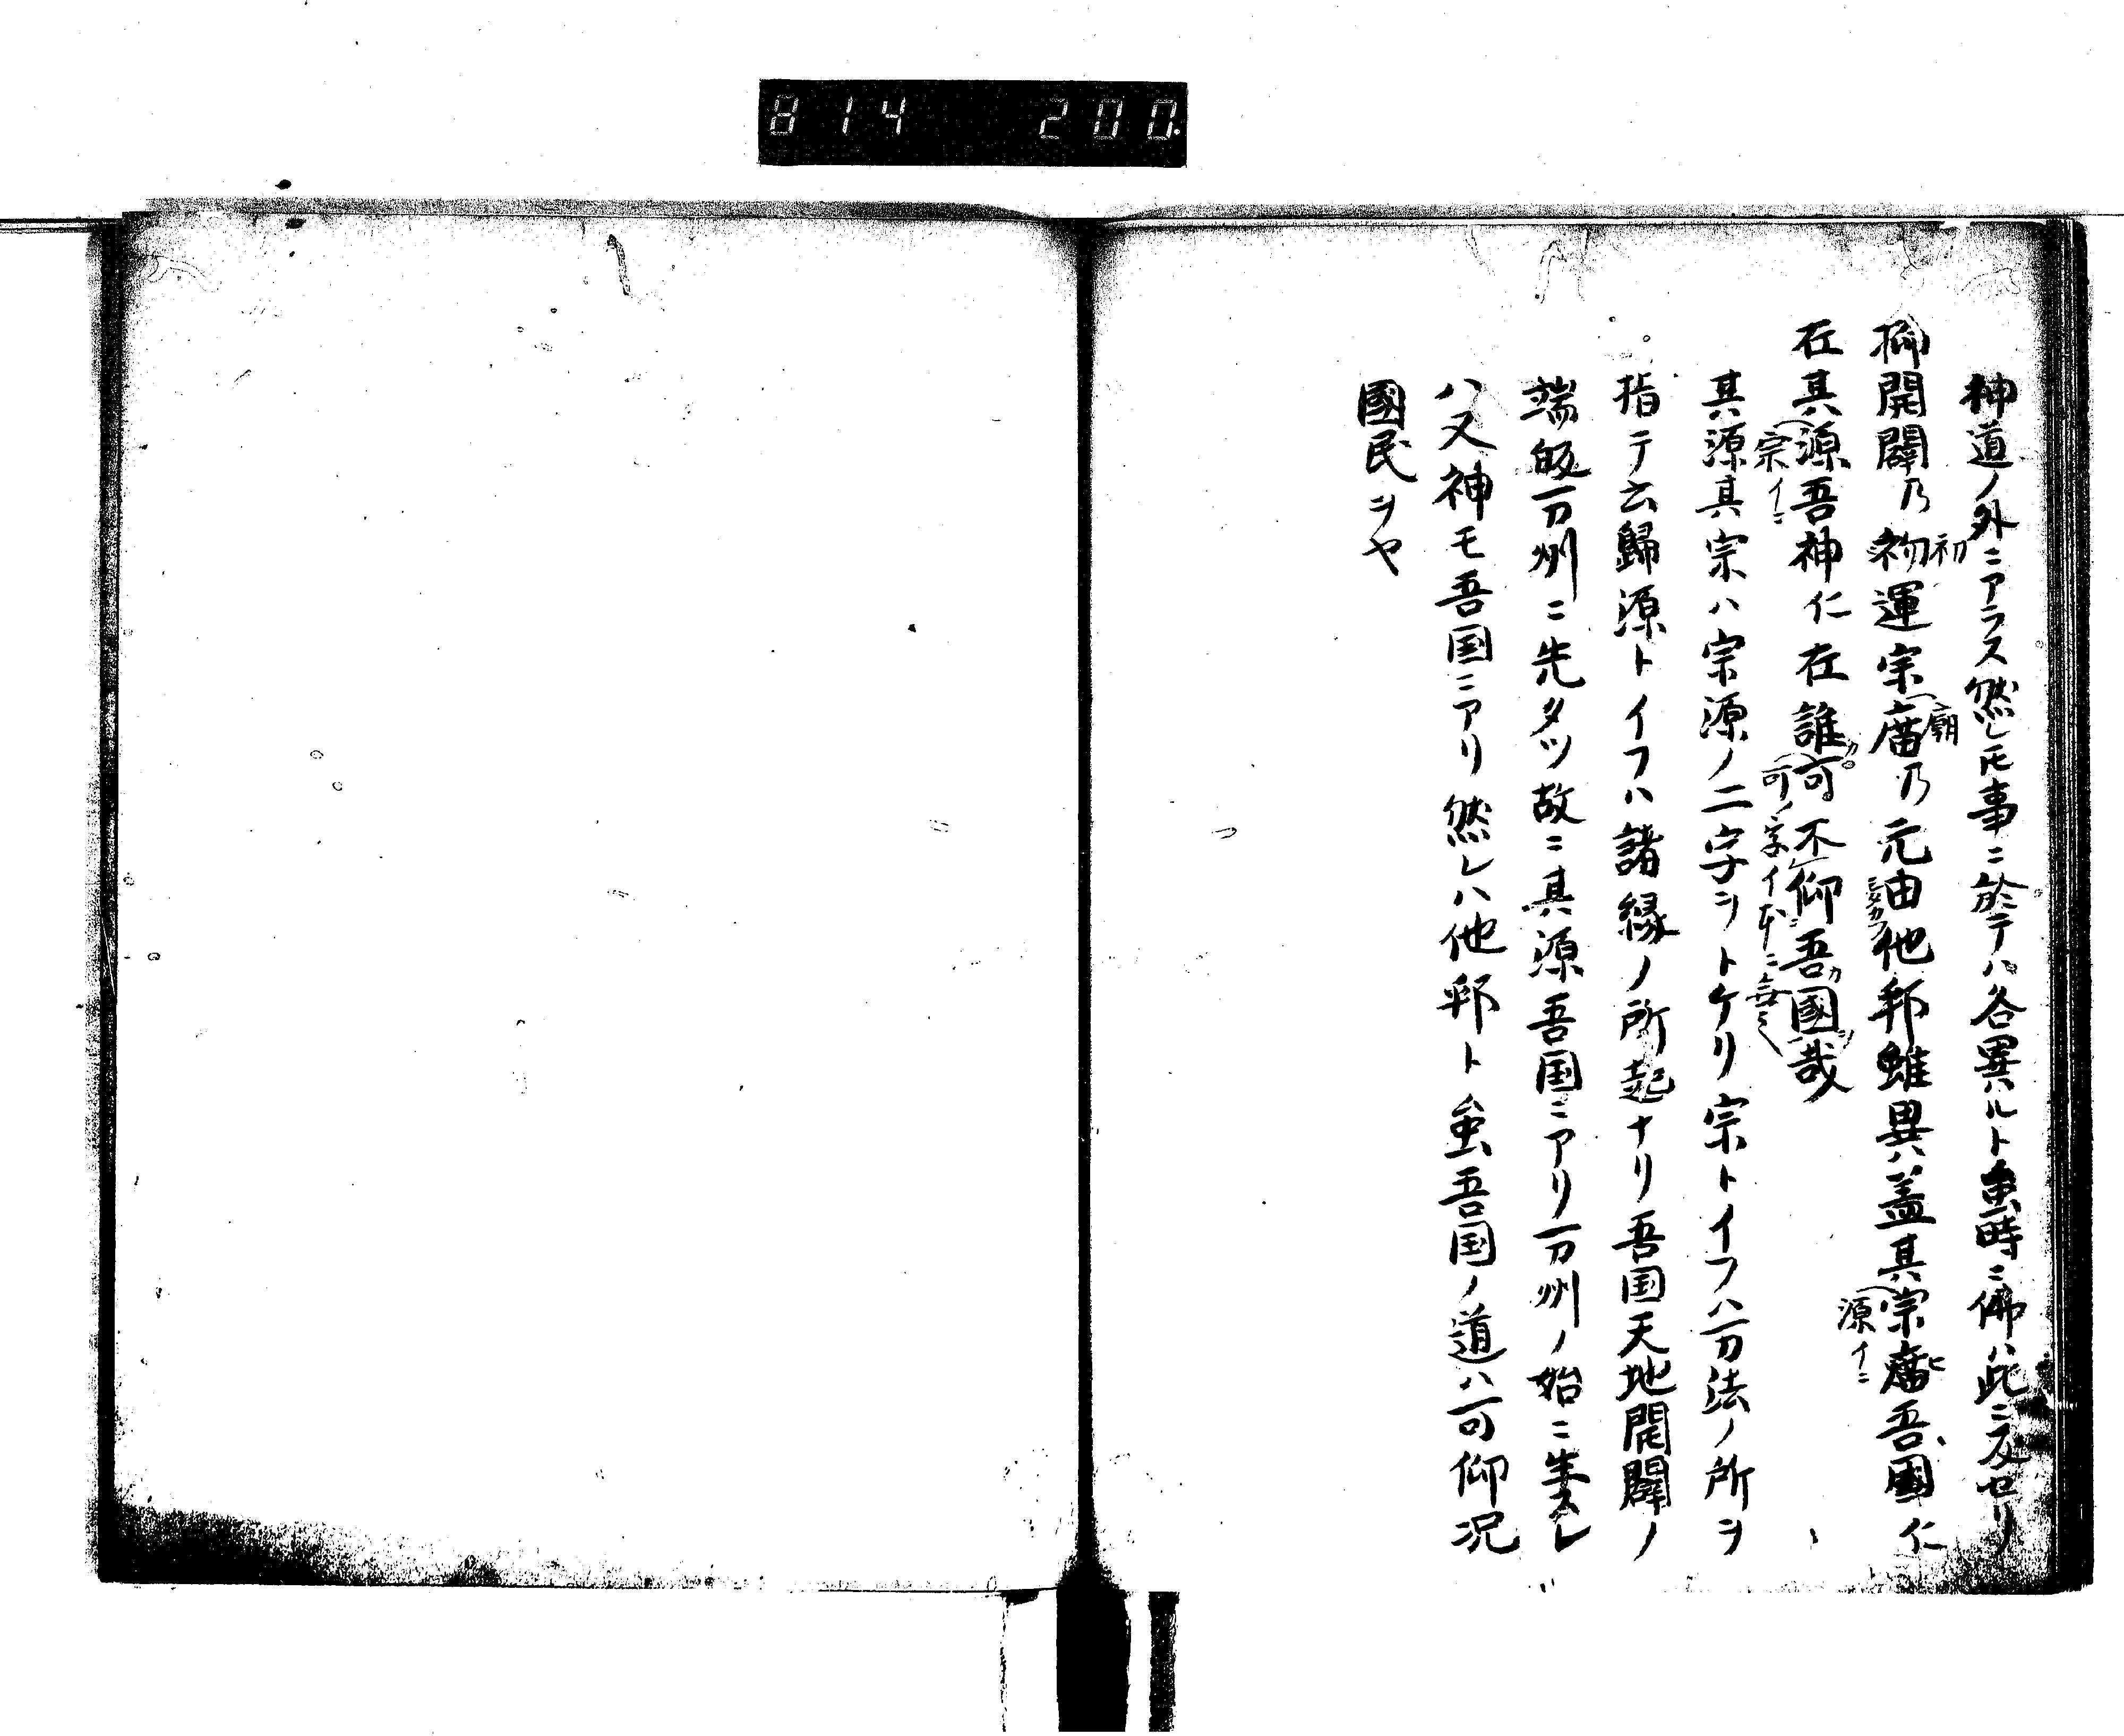 814 200.
神道ノ外ニアラス然レ𪜈事ニ於テハ各異ハルト虽時ニ佛ハ此ニ反セリ
抑開闢乃初運宗廟乃元由他邦雖異蓋其宗廟吾國仁
初
廟
源イニ
在其源吾神仁在誰可不仰吾國哉
宗イニ
可ノ字イ本ニ無之
其源其宗ハ宗源ノ二字ヲトケリ宗トイフハ万法ノ所ヲ
指テ云歸源トイフハ諸縁ノ所起ナリ吾国天地開闢ノ
端的万州ニ先タツ故ニ其源吾国ニアリ万州ノ始ニ生スレ
ハ又神モ吾国ニアリ然レハ他邦ト虽吾国ノ道ハ可仰况
國民ヲヤ